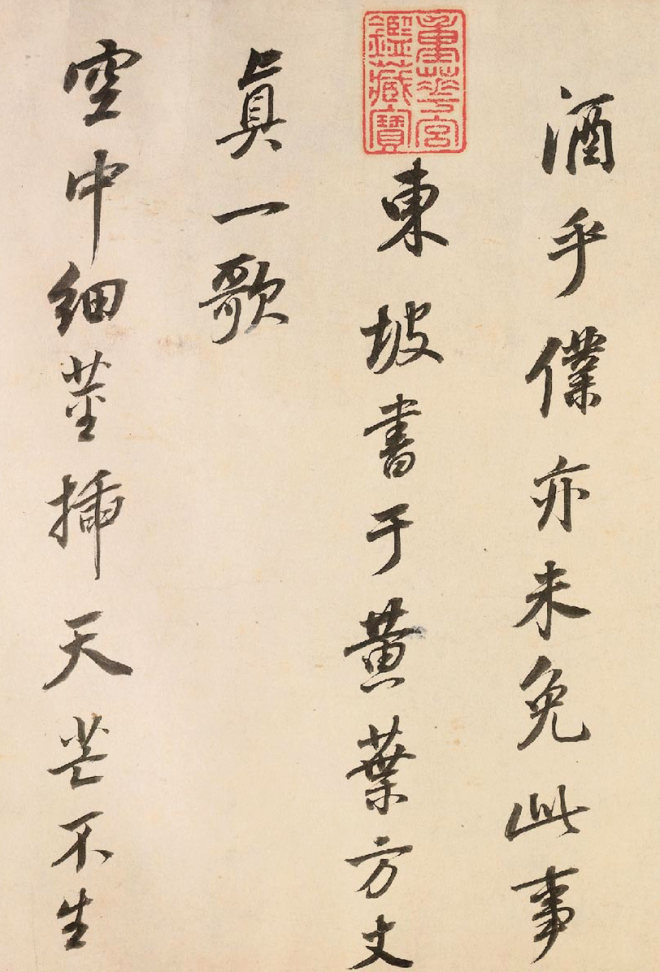 酒乎僕亦未免此事
重華宮
鑑藏寶
東坡書于黃葉方丈
眞一歌
空中細莖插天芒不生